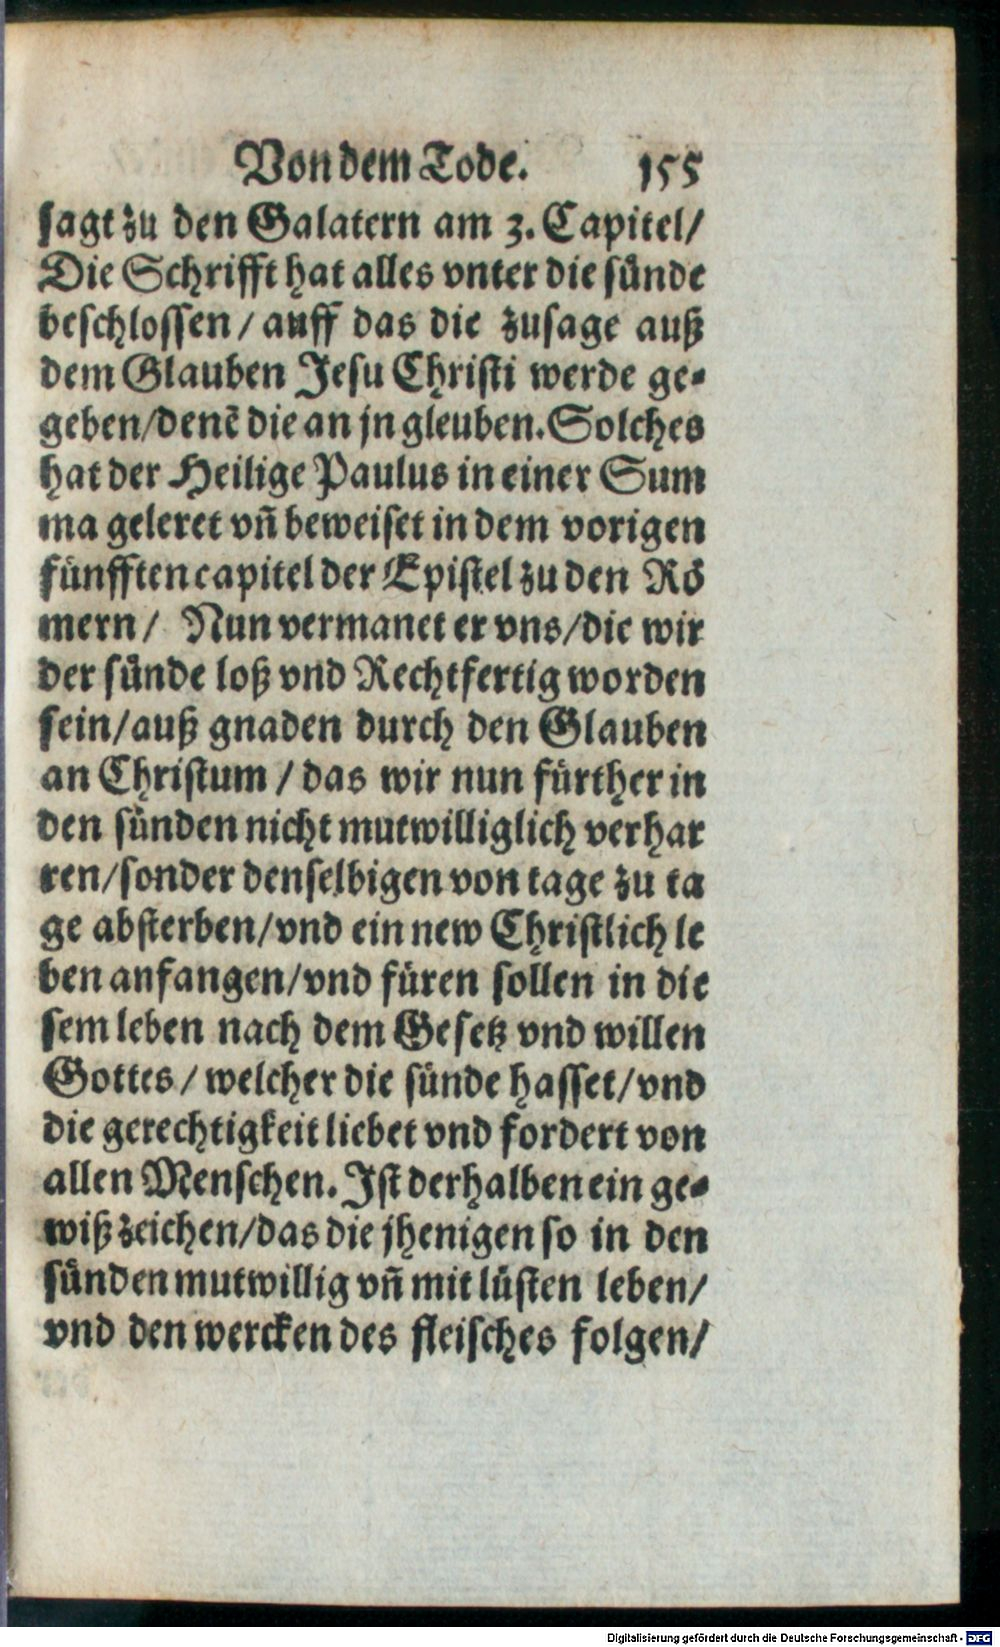 Von dem Tode. 155
sagt zu den Galatern am 3. Capitel/
Die Schrifft hat alles vnter die sünde
beschlossen/ auff das die zusage auß
dem Glauben Jesu Christi werde ge-
geben/denē die an jn gleuben. Solches
hat der Heilige Paulus in einer Sum
ma geleret vn̄ beweiset in dem vorigen
fünfften capitel der Epistel zu den Rö
mern/ Nun vermanet er vns/die wir
der sünde loß vnd Rechtfertig worden
sein/auß gnaden durch den Glauben
an Christum/ das wir nun fürther in
den sünden nicht mutwilliglich verhar
ren/sonder denselbigen von tage zu ta
ge absterben/vnd ein new Christlich le
ben anfangen/vnd füren sollen in die
sem leben nach dem Gesetz vnd willen
Gottes/ welcher die sünde hasset/vnd
die gerechtigkeit liebet vnd fordert von
allen Menschen. Ist derhalben ein ge-
wiß zeichen/das die jhenigen so in den
sünden mutwillig vn̄ mit lüsten leben/
vnd den wercken des fleisches folgen/
Digitalisierung gefördert durch die Deutsche Forschungsgemeinschaft - DFG